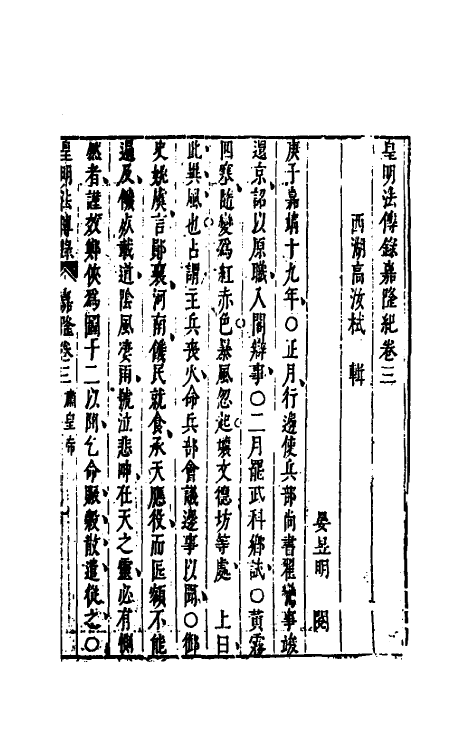 皇明法傳錄嘉隆紀卷三
西湖高汝栻　輯
晏昱明　閱
庚子嘉靖十九年〇正月行邊使兵部尚書翟鑾事竣
還京詔以原職入閣辦事〇二月罷武科鄉試〇黃霧
四塞隨變為紅赤色暴風忽起壞文德坊等處　上曰
此異風也占謂主兵喪火命兵部會議邊事以聞〇御
史姚虞言鄖襄河南饑民就食承天應役而匠額不能
遍及饑莩載道陰風凄雨號泣悲呻在天之靈必有惻
然者謹效鄭俠為圖十二以聞乞命賑穀散遣從之〇
皇明法傳錄　嘉隆卷三　肅皇帝